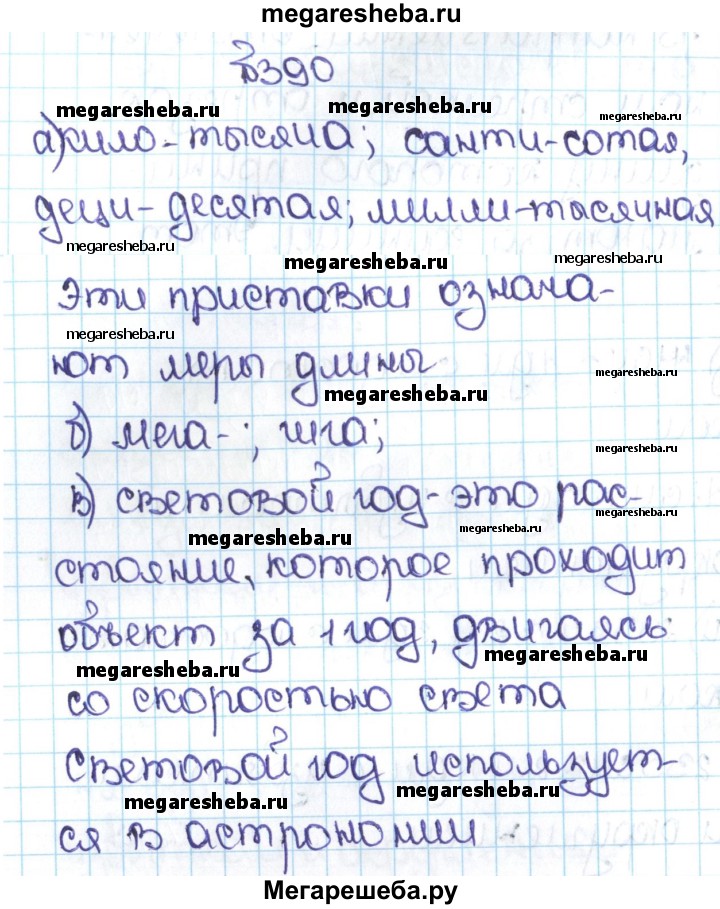 megaresheba.ru
№390
megaresheba.ru megaresheba.ru megaresheba.ru
а) кило-тысяча; санти-сотая,
деци-десятая; милли-тысячная
megaresheba.ru megaresheba.ru megaresheba.ru
Эти приставки означа-
megaresheba.ru
ют меры длины
megaresheba.ru megaresheba.ru
б) мега-; гига;
megaresheba.ru
в) световой год-это рас-
megaresheba.ru megaresheba.ru megaresheba.ru
стояние, которое проходит
объект за 1 год, двигаясь
megaresheba.ru megaresheba.ru
со скоростью света
световой год использует-
megaresheba.ru megaresheba.ru
ся в астрономии
Мегарешеба.ру